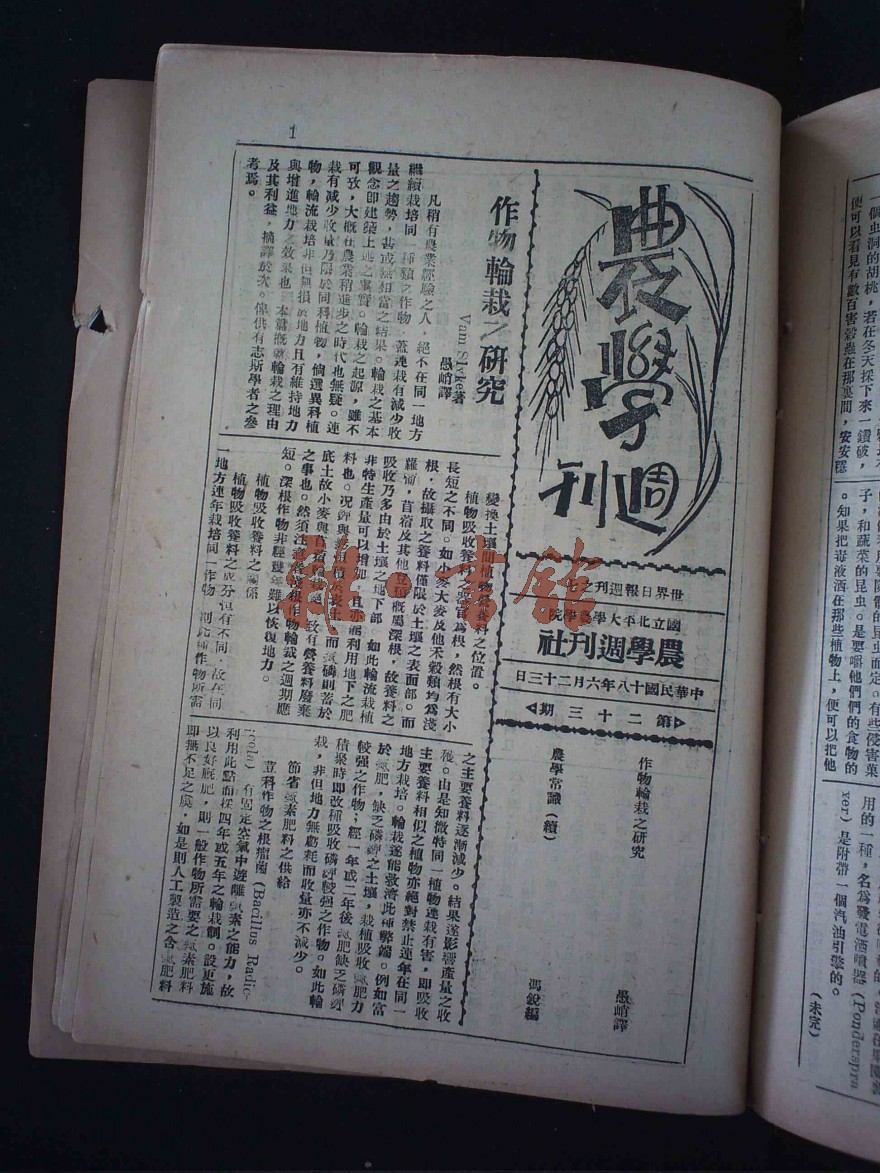 1
農學
週刊
世界日報週刊之七
國立北平大學農學院
農學週刊社
中華民國十八年六月二十三日
第二十三期
作物輪栽之研究 愚峭譯
農學常識(續) 馮銳編
作物輪栽之研究
Vam Slyke著
愚峭譯
凡稍有農業經驗之人,絕不在同一地方
繼續栽培同一種類之作物,蓋連栽有減少收
量之趨勢,甚或無相當之結果。輪栽之基本
觀念卽建築上述之事實。輪栽之起源,雖不
可攷,大概在農業稍進步之時代也無疑。連
栽有減少收量乃限於同科植物,倘選異科植
物,輪流栽培非但無損於地力且有維持地力
與增進地力之效果也。本篇概論輪栽之理由
及其利益,摘譯於次。俾供有志斯學者之參
考焉。
變換土壤間植物營養料之位置。
植物吸收養料之器官爲根,然根有大小
長短之不同。如小麥大麥及他禾穀類均爲淺
根,故攝取之養料僅限於土壤之表面部。而
蘿蔔,苜蓿及其他豆科概屬深根,故養料之
吸收乃多由於土壤之地下部。如此輪流栽植
非特生產量可以增加,且亦能利用地下之肥
料也。況鉀與 積 表土而氮磷則蓄於
底土故小麥與苜蓿輪栽 致有營養料廢棄
之事也。然須注意者深根作物輪栽之週期應
短。深根作物非經數年難以恢復地力。
植物吸收養料之關係
植物吸收養料之成分恒有不同,故在同
一地方連年栽培同一作物 則此種作物所需
之主要養料逐漸減少。結果遂影響產量之收
穫。由是知微特同一植物連栽有害,卽吸收
主要養料相似之植物亦絕對禁止連年在同一
地方栽培。輪栽遂能救濟此種弊端。例如富
於氮肥,缺乏磷鉀之土壤,栽植吸收氮肥力
較强之作物;經一年或二年後氮肥缺乏磷鉀
積聚時卽改種吸收磷鉀較强之作物。如此輪
栽,非但地力無虧耗而收量亦不減少。
節省氮素肥料之供給
荳科作物之根瘤菌(Bacillus Radic-
icola)有固定空氣中遊離氮素之能力,故
利用此點而採四年或五年之輪栽制。設更施
以良好廐肥,則一般作物所需要之氮素肥料
卽無不足之虞,如是則人工製造之含氮肥料
一個虫洞的胡桃,若在冬天採下來一鑽破,
便可以看見有數百害穀蟲在那裏間,安安穩
子,和蔬菜的昆虫。是要嚼他們們的食物的
。知果把毒液洒在那些植物上,便可以把他
用的一種,名爲發電洒噴器(Ponderspra
yer)是附帶一個汽油引擎的。
(未完)
雜·書館